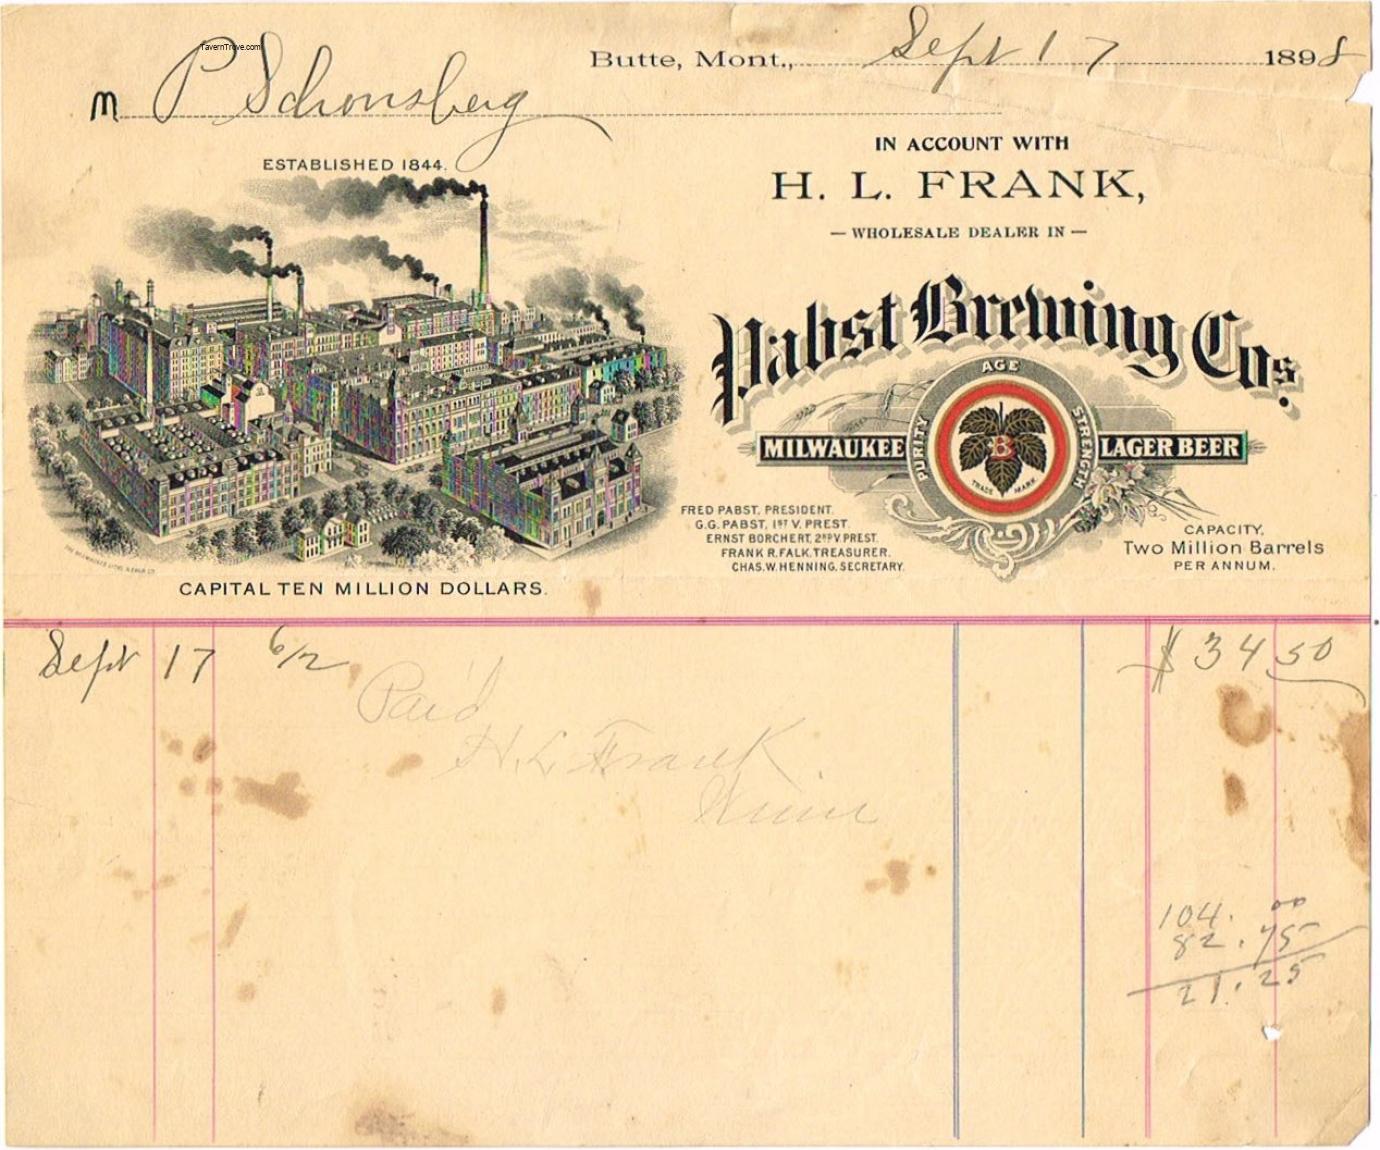 TavernTrove.com
Butte, Mont., Sept 17 1898
M P Schonsberg
ESTABLISHED 1844.
IN ACCOUNT WITH
H. L. FRANK,
— WHOLESALE DEALER IN —
Pabst Brewing Cos.
AGE
PURITY
STRENGTH
MILWAUKEE
LAGER BEER
B
TRADE MARK
FRED PABST, PRESIDENT.
G.G. PABST, 1ST V. PREST.
ERNST BORCHERT, 2ND V. PREST.
FRANK R. FALK, TREASURER.
CHAS. W. HENNING, SECRETARY.
CAPACITY,
Two Million Barrels
PER ANNUM.
CAPITAL TEN MILLION DOLLARS.
Sept 17 6/2 $ 34 50
Paid
H. L. Frank.
104. 00
82. 75
21. 25